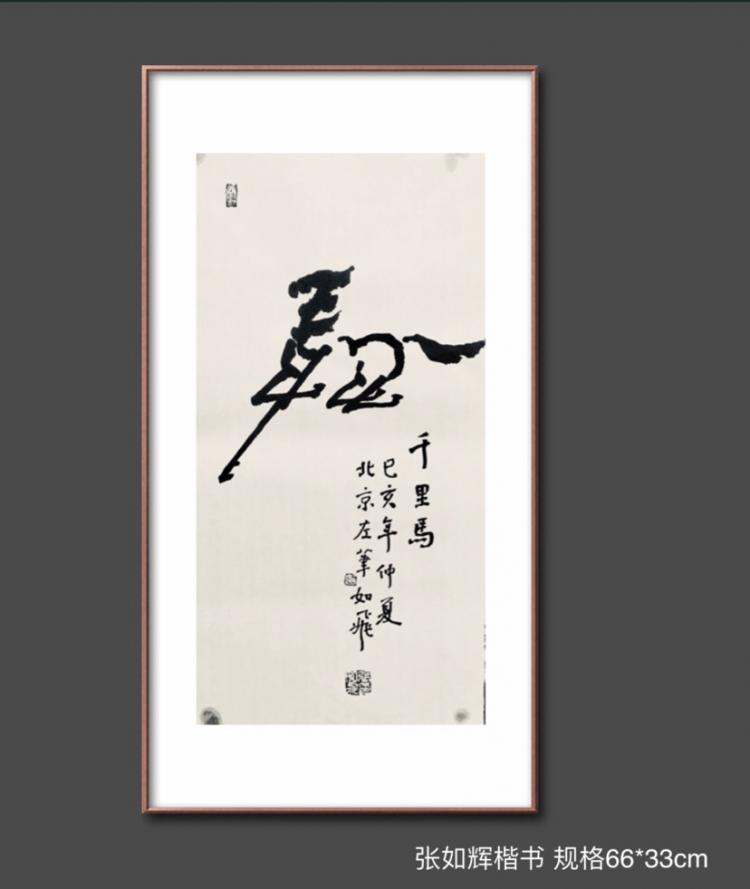 千里馬
己亥年仲夏
北京左筆如飛
张如辉楷书 规格66*33cm